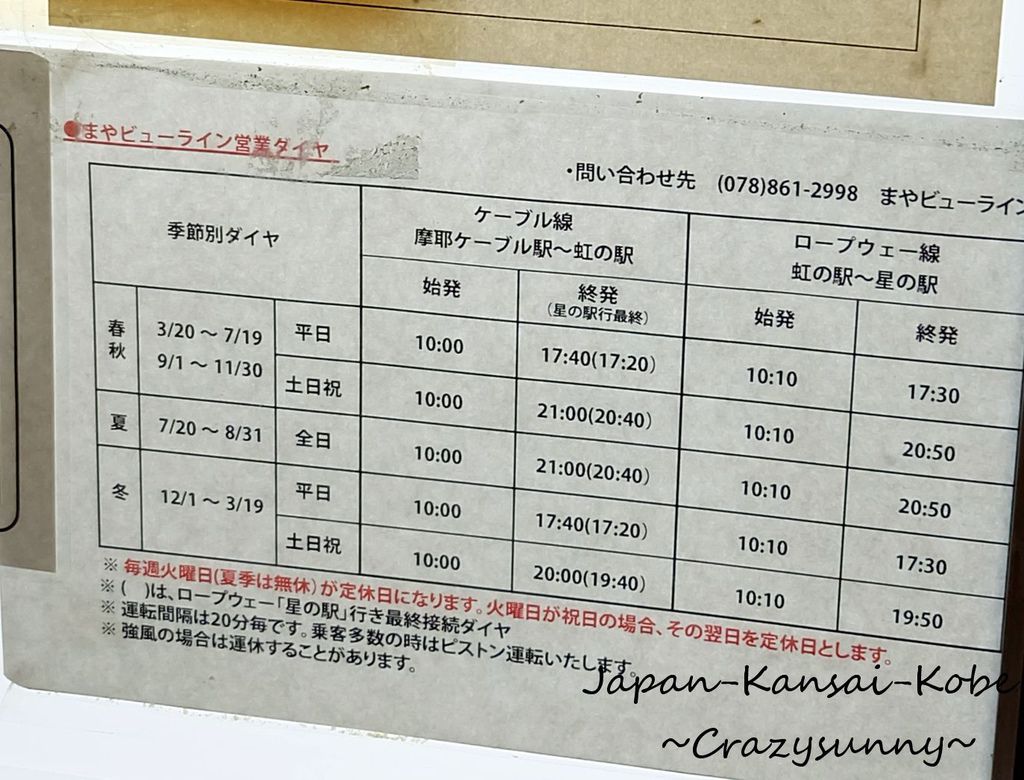 ●まやビューライン営業ダイヤ
・問い合わせ先 (078)861-2998 まやビューライン
季節別ダイヤ
ケーブル線
摩耶ケーブル駅〜虹の駅
ロープウェー線
虹の駅〜星の駅
始発 終発 始発 終発
(星の駅行最終)
春秋 3/20 〜 7/19 平日 10:00 17:40(17:20) 10:10 17:30
9/1 〜 11/30 土日祝 10:00 21:00(20:40) 10:10 20:50
夏 7/20 〜 8/31 全日 10:00 21:00(20:40) 10:10 20:50
冬 12/1 〜 3/19 平日 10:00 17:40(17:20) 10:10 17:30
土日祝 10:00 20:00(19:40) 10:10 19:50
※ 毎週火曜日(夏季は無休)が定休日になります。火曜日が祝日の場合、その翌日を定休日とします。
※ ( )は、ロープウェー「星の駅」行き最終接続ダイヤ
※ 運転間隔は20分毎です。乗客多数の時はピストン運転いたします。
※ 強風の場合は運休することがあります。
Japan-Kansai-Kobe
~Crazysunny~